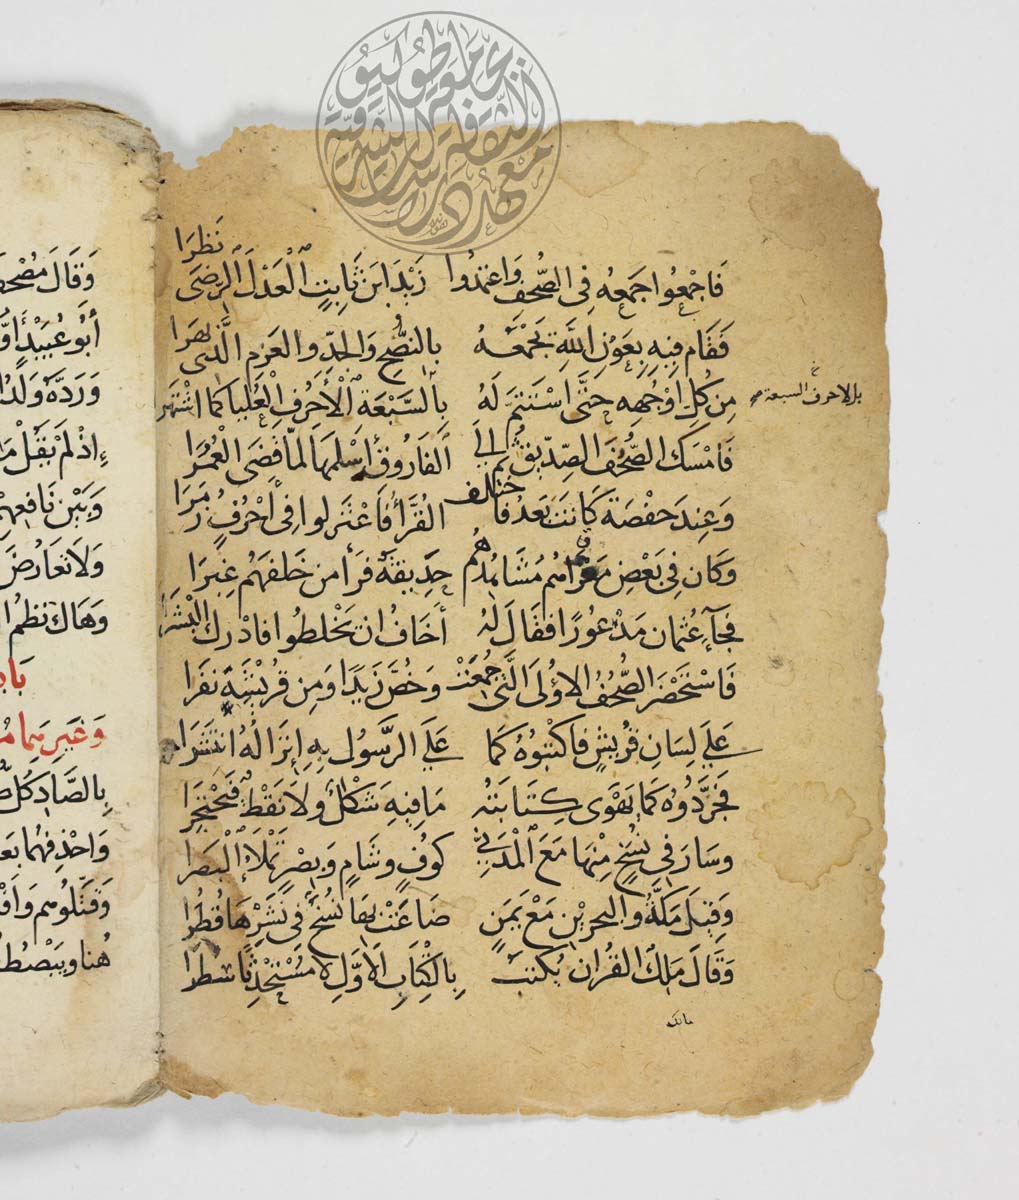 فَاجْمَعُوا جَمْعَهُ فِي الصُّحْفِ وَاعْتَمِدُوا زَيْدَ ابْنَ ثَابِتٍ الْعَدْلَ الرِّضَى نَظَرَا
فَقَامَ فِيهِ بِعَوْنِ اللَّهِ يَجْمَعُهُ بِالنُّصْحِ وَالْجِدِّ وَالْعَزْمِ الَّذِي بَهَرَا
مِنْ كُلِّ اَوْجُهِهِ حَتَّى اسْتَتَمَّ لَهُ بِالسَّبْعَةِ الْأَحْرُفِ الْعُلْيَا كَمَا اشْتَهَرَا
بالاحرف السبعة صح
فَامْسَكَ الصُّحُفَ الصِّدِّيقُ ثُمَّ اِلَى الفَارُوقِ أَسْلَمَهَا لَمَّا قَضَى الْعُمُرَا
وَعِنْدَ حَفْصَةَ كَانَتْ بَعْدُ فَاخْتَلَفَ القُرَّأُ فَاعْتَزَلوا فِي اَحْرُفٍ زُمَرَا
وَكَانَ فِي بَعْضِ مَغْزَاهُمْ مُشَاهِدُهُمْ حُذَيْفَةٌ فَرَأَ مِنْ خَلْفِهِمْ عِبَرَا
فَجَآءَ عُثْمَانَ مَذْعُورًا فَقَالَ لَهُ أَخَافُ انْ يَخْلِطُوا فَادْرِكِ الْبَشَرَا
فَاسْتَحْضَرَ الصُّحُفَ الاُوْلَى الَّتِي جُمِعَتْ وَخَصَّ زَيْدًا وَمِنْ قُرَيْشِهِ نَفَرَا
عَلَى لِسَانِ قُرَيْشٍ فَاكْتُبُوهُ كَمَا عَلَى الرَّسُولِ بِهِ إِنْزَالُهُ انْتَشَرَا
فَجَرَّدُوهُ كَمَا يَهْوَى كِتَابَتَهُ مَا فِيهِ شَكْلٌ وَلَا نَقْطٌ فَيَحْتَجِرَا
وَسَارَ فِي نُسَخٍ مِنْهَا مَعَ الْمَدَنِي كُوفٍ وَشَامٍ وَبِصْرٍ تَمْلَاُ الْبَصَرَا
وَقِيلَ مَكَّةُ وَالبَحْرَيْنِ مَعْ يَمَنٍ ضَاعَتْ بِهَا نُسَخٌ فِي نَشْرِهَا قُطُرَا
وَقَالَ مَلِكُ القُرْانُ يُكْتَبُ بِالْكِتَابِ الاَوَّلِ لَا مُسْتَحْدَثًا سُطِرَا
مالك
وَقَالَ
أَبُو عُبَيْدٍ
وَرَدَّهُ وَلَدُ
اِذْ لَمْ يَقُلْ
وَبَيْنَ نَافِعِهِمْ
وَلَا تَعَارُضَ
وَهَاكَ نَظْمَ
بَا
وَغَيْرِهِمَا
بِالصَّادِ كُلُّ
وَاحْذِفْهُمَا
وَقَتِّلُوهُمْ
هُنا وَيَبْصُطُ